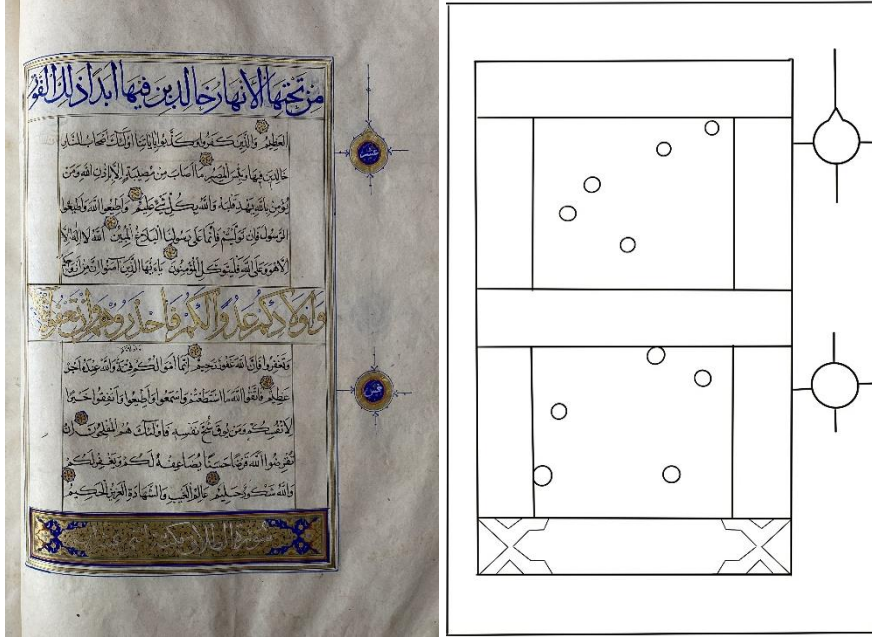 من تحتها الانهار خالدين فيها ابدا ذلك الفوز
العظيم والذين كفروا وكذبوا باياتنا اولئك اصحاب النار
عشر
خالدين فيها وبئس المصير ما اصاب من مصيبة الا باذن الله ومن
يؤمن بالله يهد قلبه والله بكل شيء عليم واطيعوا الله واطيعوا
الرسول فان توليتم فانما على رسولنا البلاغ المبين الله لا اله الا
هو وعلى الله فليتوكل المؤمنون يا ايها الذين آمنوا ان من ازواجكم
واولادكم عدوا لكم فاحذروهم وان تعفوا
وتغفروا فان الله غفور رحيم انما اموالكم فتنة والله عنده اجر
عظيم فاتقوا الله ما استطعتم واسمعوا واطيعوا وانفقوا خيرا
خمس
لانفسكم ومن يوق شح نفسه فاولئك هم المفلحون ان
تقرضوا الله قرضا حسنا يضاعفه لكم ويغفر لكم
والله شكور حليم عالم الغيب والشهادة العزيز الحكيم
سورة الطلاق